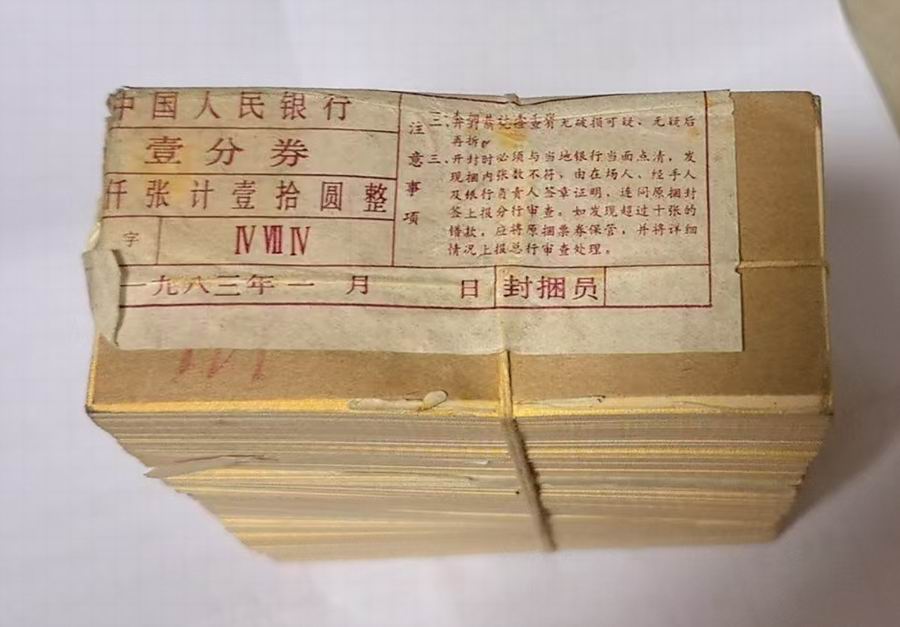 中国人民银行
壹分券
仟张计壹拾圆整
字 ⅣⅦⅣ
一九八三年一月 日 封捆员
注意事项
无破损可疑、无疑后
再拆。
三、开封时必须与当地银行当面点清，发
现捆内张数不符，由在场人、经手人
及银行负责人签章证明，连同原捆封
签上报分行审查。如发现超过十张的
错款，应将原捆票券保管，并将详细
情况上报总行审查处理。